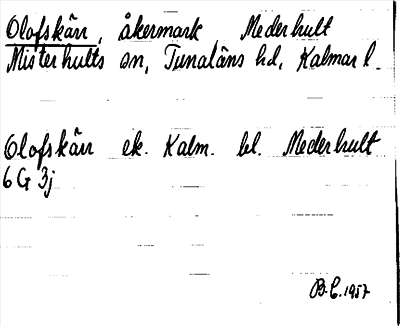 Olofskärr, åkermark Mederhult
Misterhults sn, Tunaläns hd, Kalmar l.
Olofskärr ek. Kalm. bl. Mederhult
6 G 3j
B.C. 1957